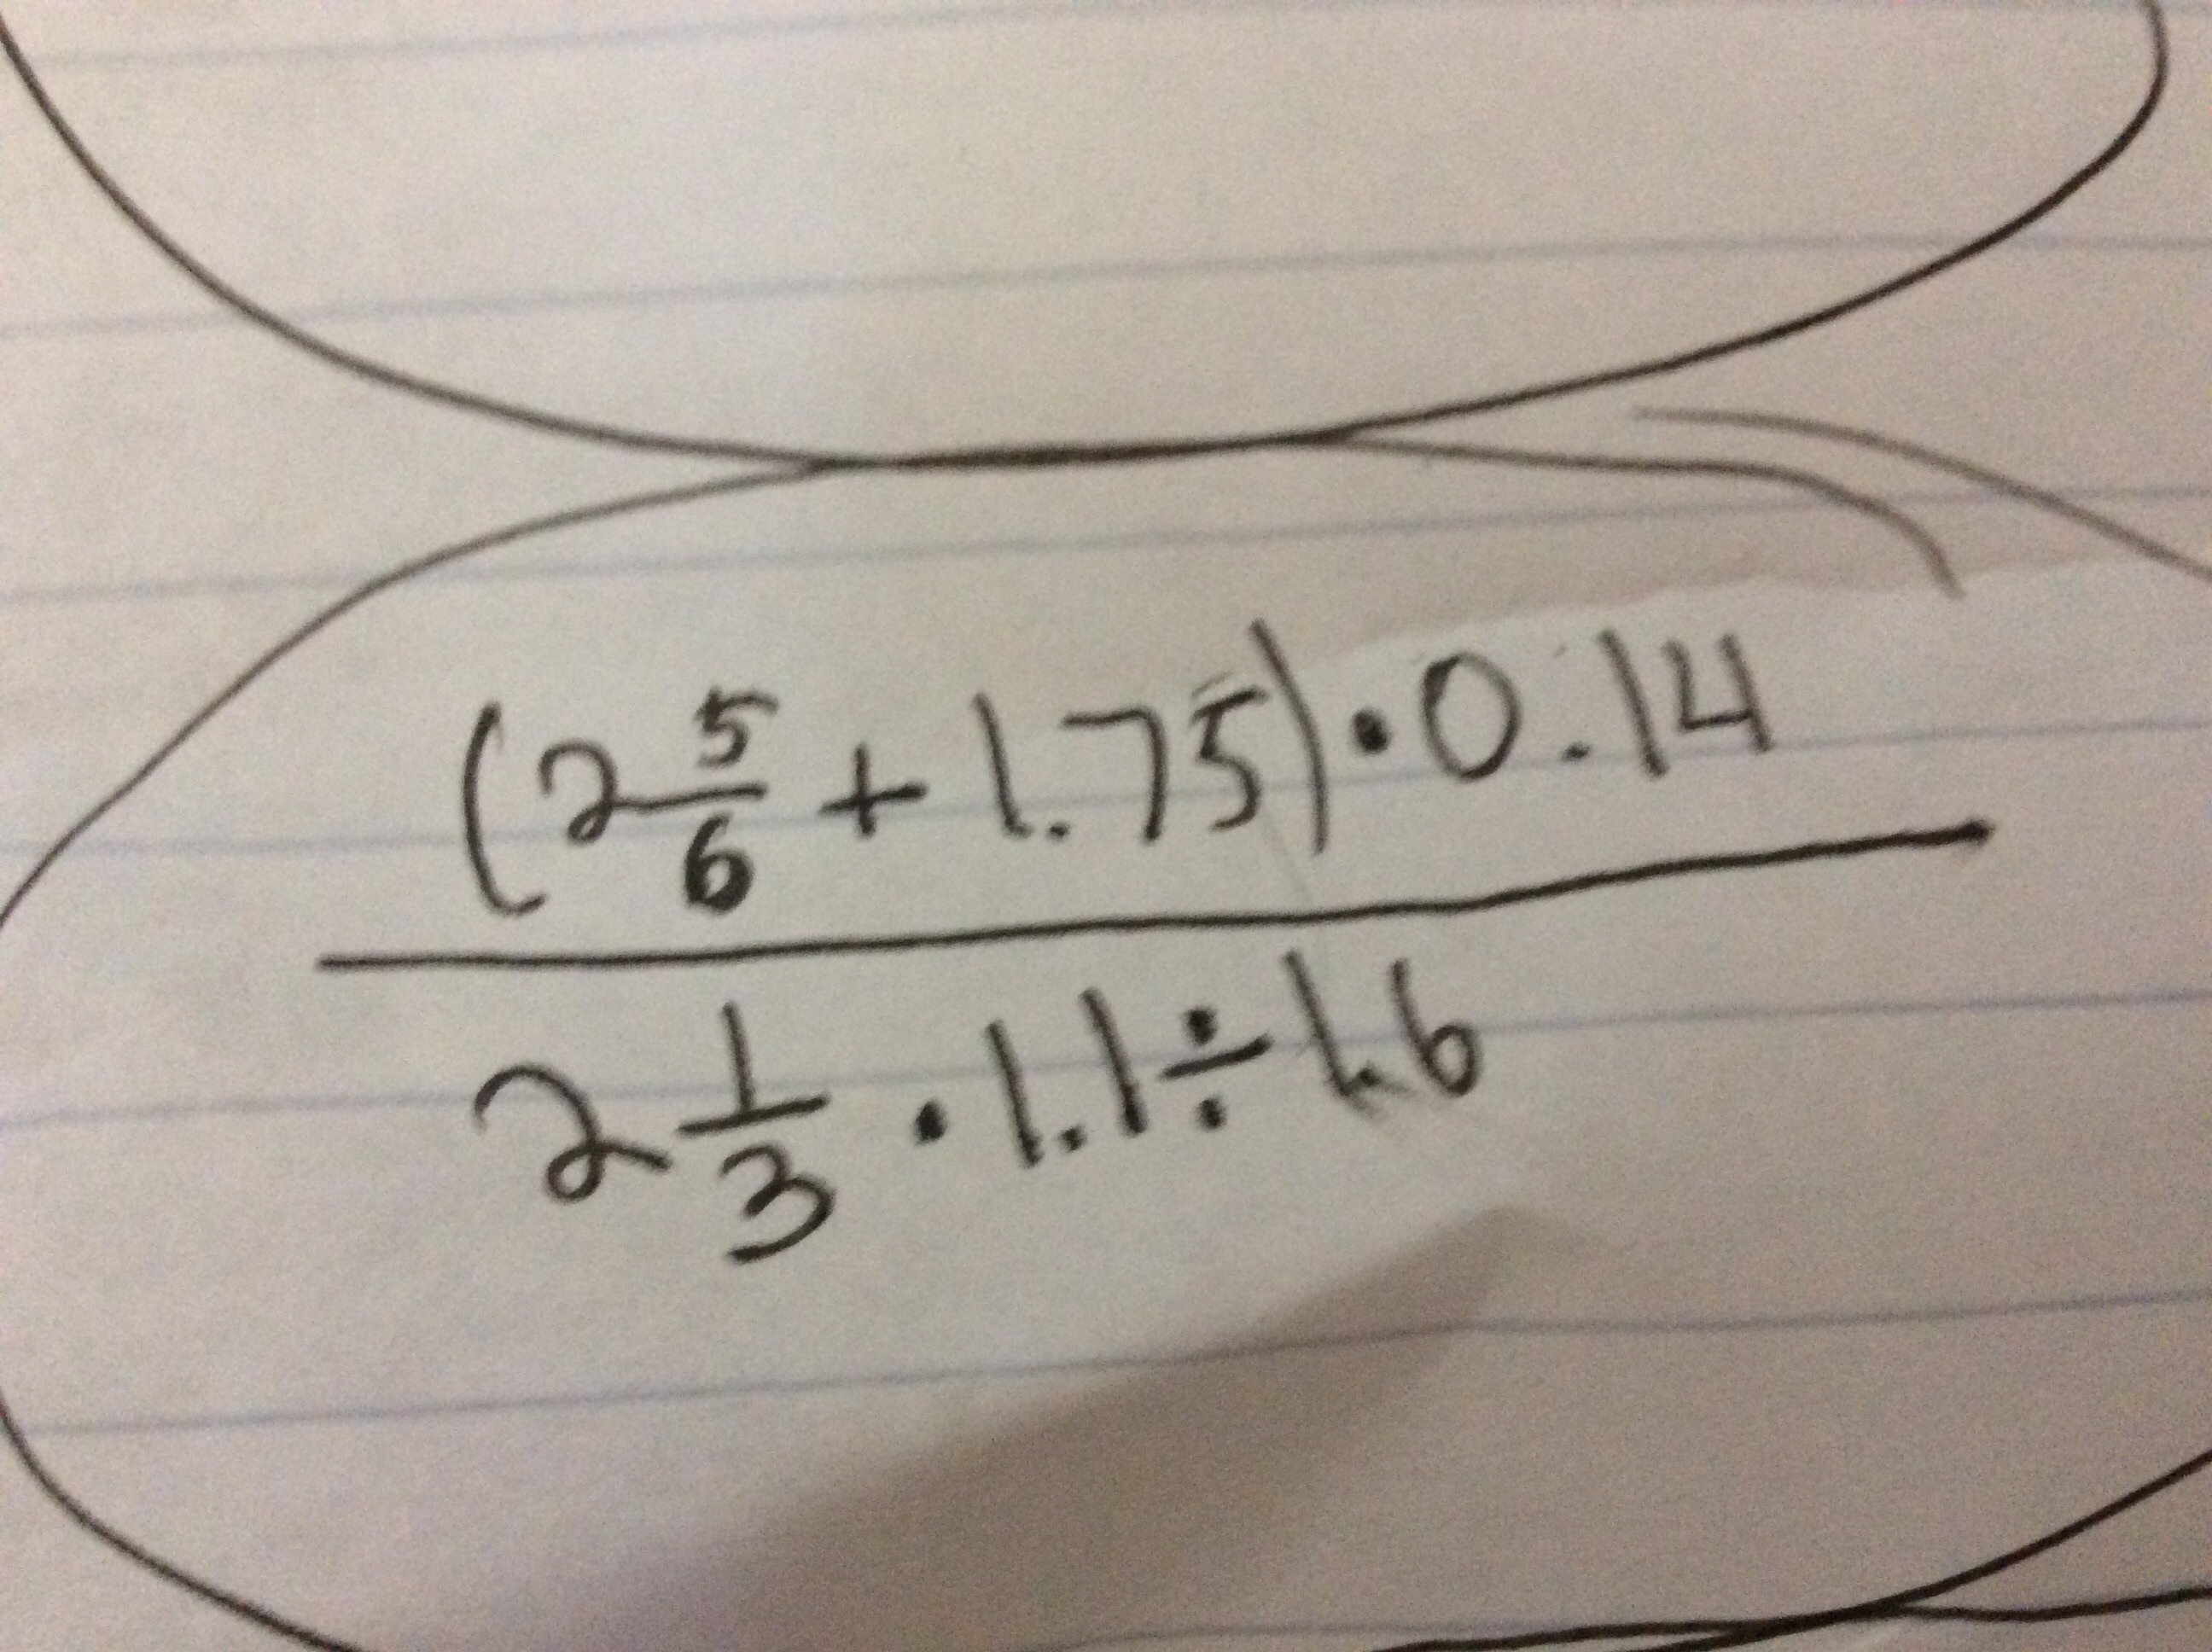 (2 5/6 + 1.75) · 0.14
2 1/3 · 1.1 ÷ 1.6